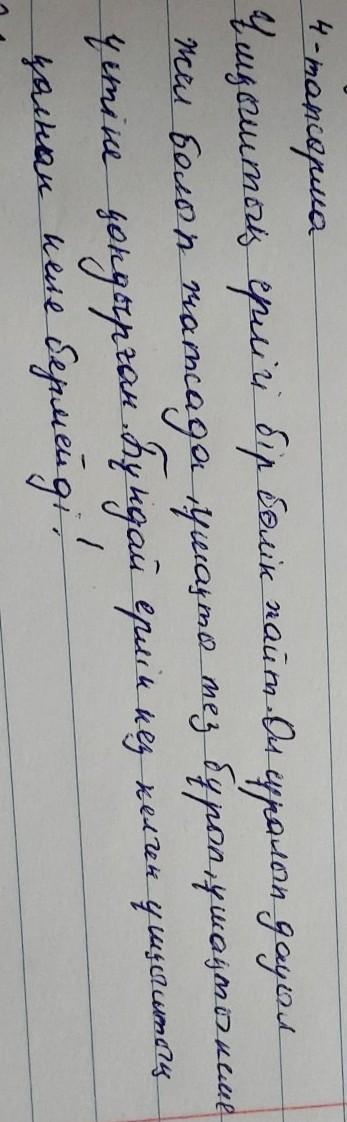 4-тапсырма
Ұшқыштың ерлігі бір бөлек жайт. Ол құралып дауыл
жиі болып жатсада, ұшақты тез бұрып, ұшақты кеме
үстіне қондырған. Бұндай ерлік кез келген ұшқыштың
қолынан келе бермейді!